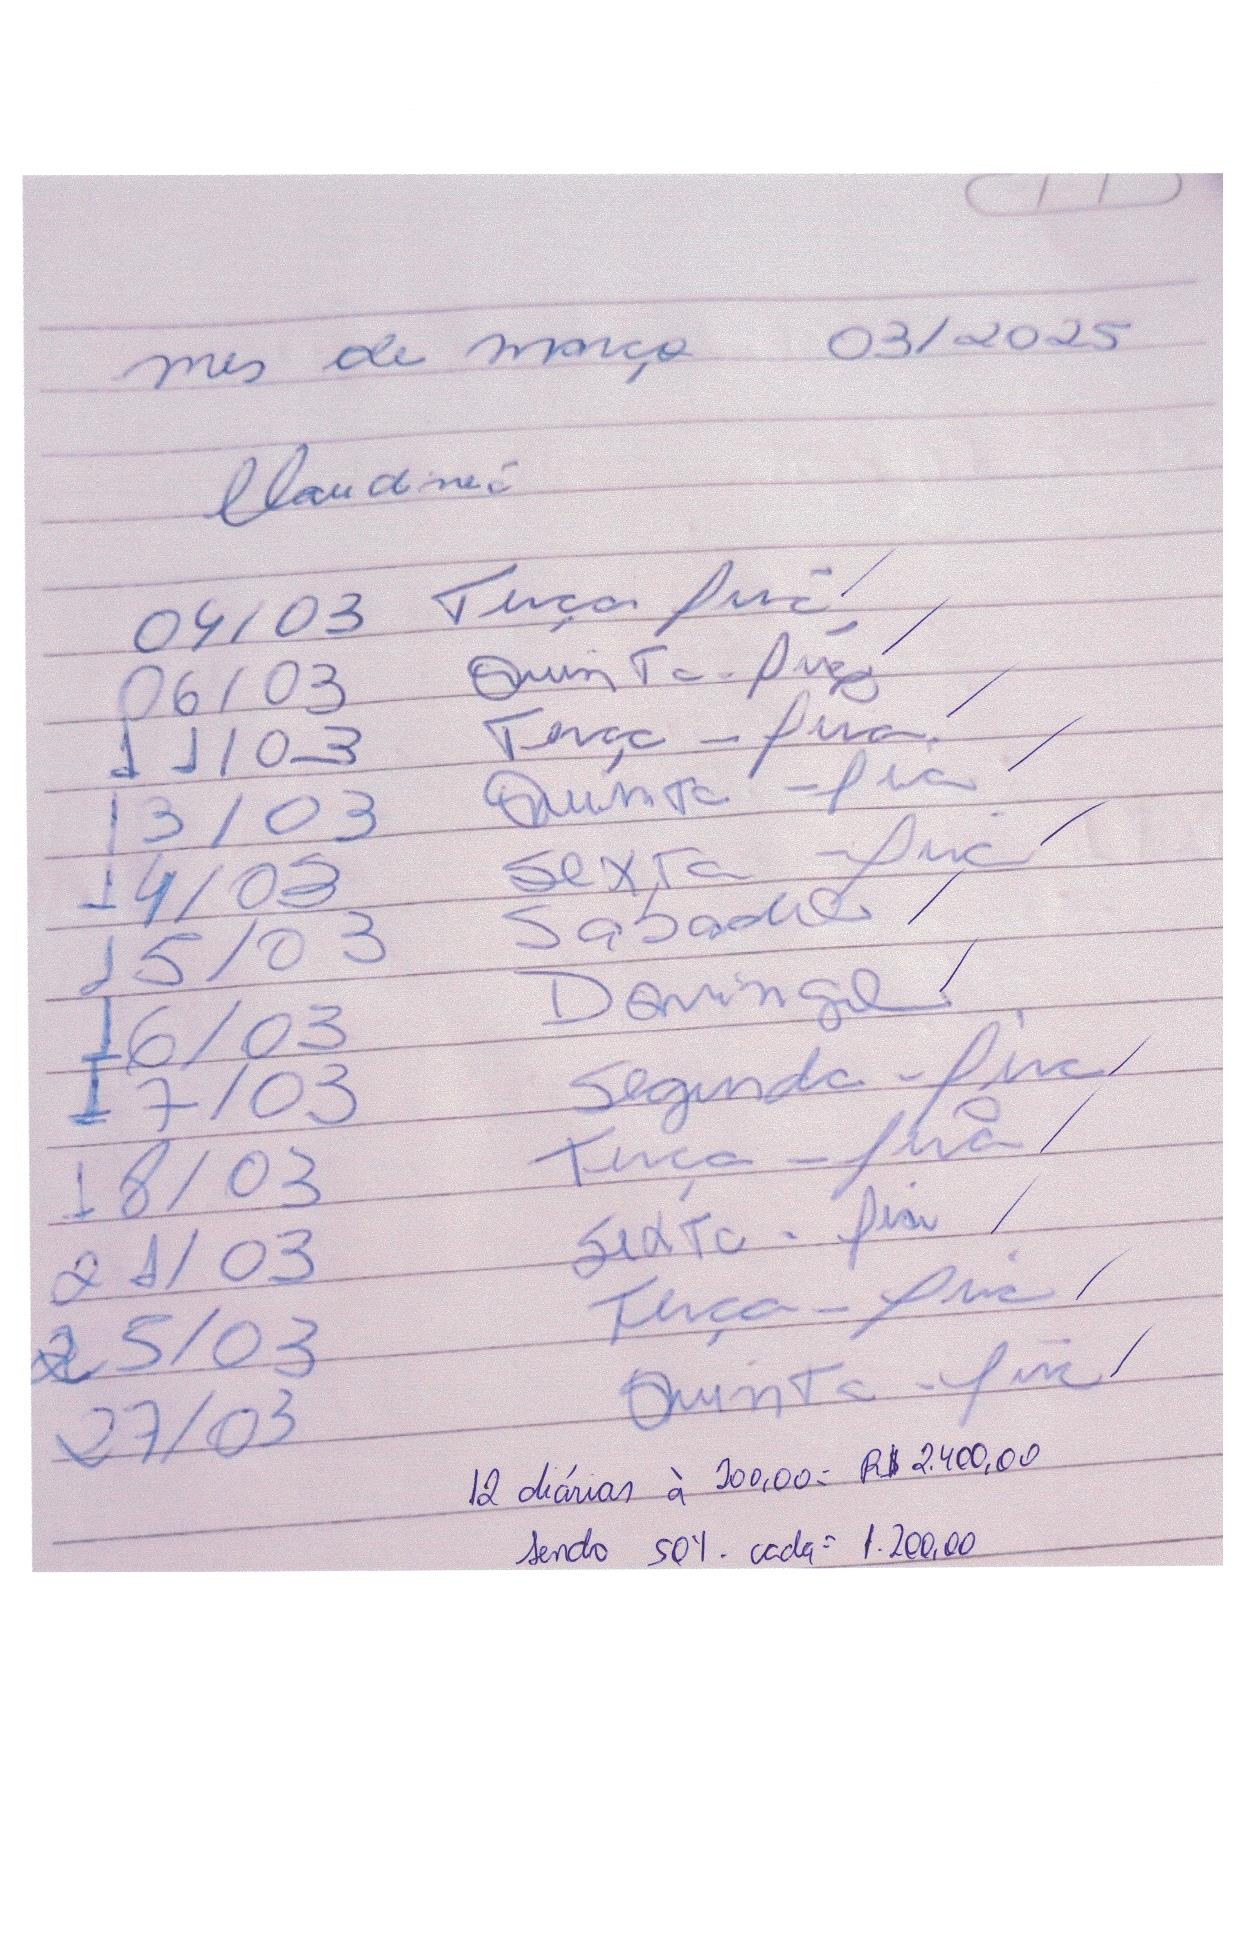 mes de março 03/2025
Claudinei
04/03 Terça feira
06/03 Quinta-feira
11/03 Terça-feira
13/03 Quinta-feira
14/03 Sexta-feira
15/03 Sabado
16/03 Domingo
17/03 Segunda-feira
18/03 Terça-feira
21/03 Sexta-feira
25/03 Terça-feira
27/03 Quinta-feira
12 diárias à 200,00= R$ 2.400,00
sendo 50%. cada= 1.200,00